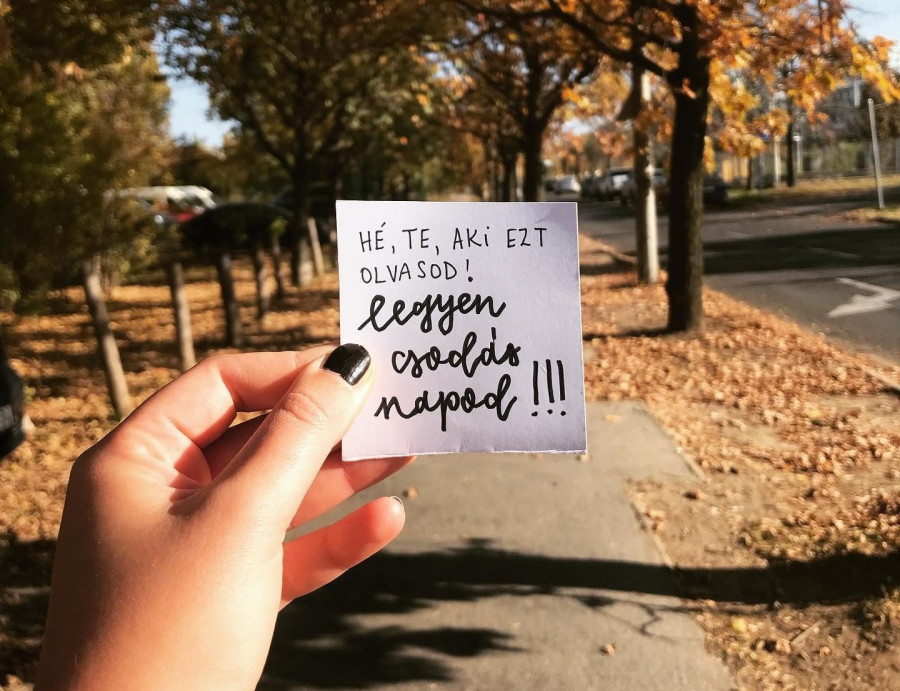 HÉ, TE, AKi EZT
OLVASOD!
legyen
csodás
napod!!!